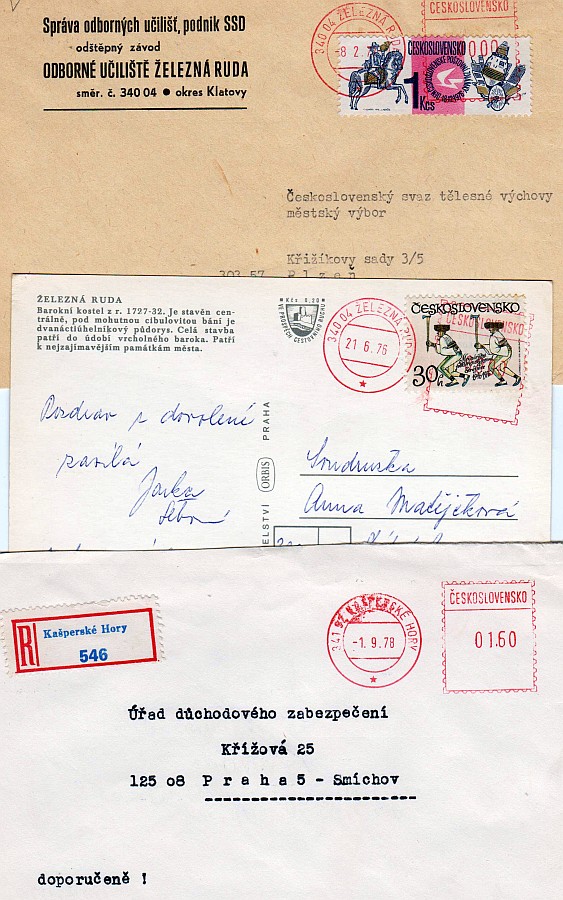 Správa odborných učilišť, podnik SSD
odštěpný závod
ODBORNÉ UČILIŠTĚ ŽELEZNÁ RUDA
směr. č. 340 04 ● okres Klatovy
340 04 ŽELEZNÁ RUDA
-8. 2.
ČESKOSLOVENSKO
000
ČESKOSLOVENSKO
1 Kčs
Československý svaz tělesné výchovy
městský výbor
Křižíkovy sady 3/5
303 57 Plzeň
ŽELEZNÁ RUDA
Barokní kostel z r. 1727-32. Je stavěn cen-
trálně, pod mohutnou cibulovitou bání je
dvanáctiúhelníkový půdorys. Celá stavba
patří do údobí vrcholného baroka. Patří
k nejzajímavějším památkám města.
Kčs 0,20
VE PROSPĚCH CESTOVNÍHO RUCHU
340 04 ŽELEZNÁ RUDA
21. 6. 76
ČESKOSLOVENSKO
30 h
Pozdrav z dovolené
zasílá
Jarka
ELSTVÍ ORBIS PRAHA
Soudružka
Anna Matějčková
R
Kašperské Hory
546
341 92 KAŠPERSKÉ HORY
-1. 9. 78
ČESKOSLOVENSKO
01.60
Úřad důchodového zabezpečení
Křížová 25
125 08 Praha 5 - Smíchov
doporučeně !